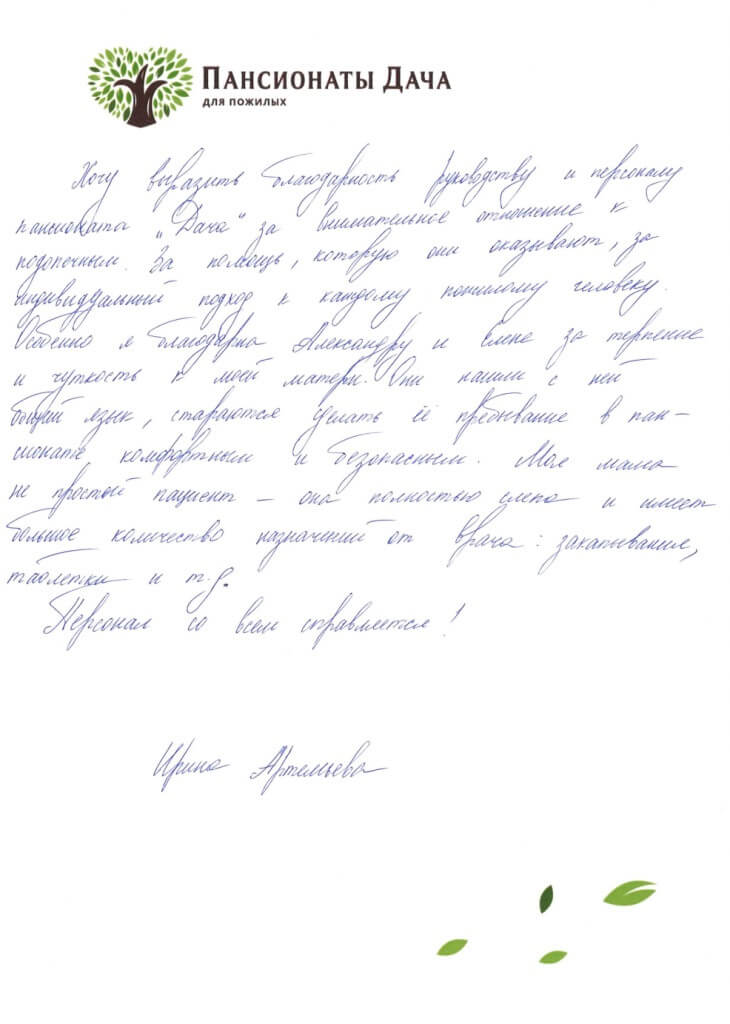 ПАНСИОНАТЫ ДАЧА
ДЛЯ ПОЖИЛЫХ
Хочу выразить благодарность руководству и персоналу
пансионата „Дача“ за внимательное отношение к
подопечным. За помощь, которую они оказывают, за
индивидуальный подход к каждому пожилому человеку.
Особенно я благодарна Александру и Елене за терпение
и чуткость к моей матери. Они нашли с ней
общий язык, стараются сделать её пребывание в пан-
сионате комфортным и безопасным. Моя мама
не простой пациент – она полностью слепа и имеет
большое количество назначений от врача: закапывания,
таблетки и т.д.
Персонал со всем справляется!
Ирина Артемьева